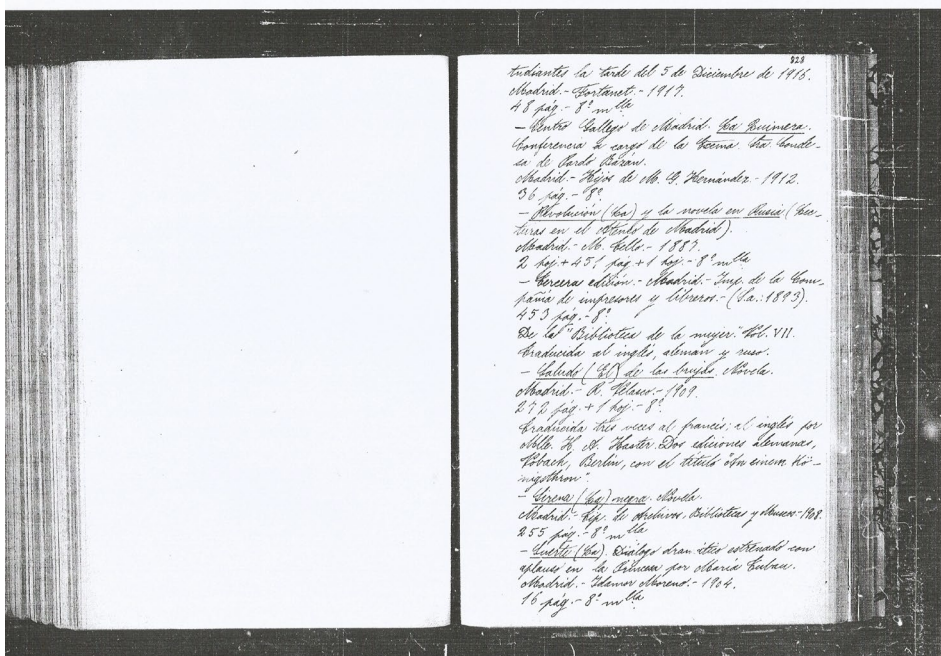 828
tudiantes la tarde del 5 de Diciembre de 1916.
Madrid.- Fortanet.- 1917.
48 pág.- 8º mlla
- Centro Gallego de Madrid. La Quimera.
Conferencia a cargo de la Excma. Sra. Conde-
sa de Pardo Bazán.
Madrid.- Hijos de M. G. Hernández.- 1912.
36 pág.- 8º
- Revolución (La) y la novela en Rusia (Lec-
turas en el Ateneo de Madrid).
Madrid.- M. Tello.- 1887.
2 hoj.+451 pág+1 hoj.- 8º mlla
- Tercera edición.- Madrid.- Imp. de la Com-
pañía de impresores y libreros.- (S.a.: 1893).
453 pág.- 8º
De la "Biblioteca de la mujer". Vol. VII.
Traducida al inglés, alemán y ruso.
- Saludo (El) de las brujas. Novela.
Madrid.- R. Velasco.- 1909.
272 pág.+1 hoj.- 8º
Traducida tres veces al francés; al inglés por
Mlle. H. A. Haster. Dos ediciones alemanas,
Berlin, con el título "An einem Kö-
nigsthron".
- Sirena (La) negra. Novela.
Madrid.- Tip. de Archivos, Bibliotecas y Museos.-1908.
255 pág.- 8º mlla
- Suerte (La). Diálogo dramático estrenado con
aplauso en la Princesa por María Tubau.
Madrid.- Idamor Moreno.- 1904.
16 pág.- 8º mlla